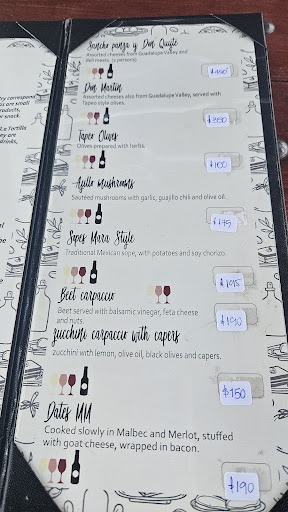 Sancho panza y Don Quijote
Assorted cheeses from Guadalupe Valley and
deli meats. (2 persons)
Don Martin
Assorted cheeses also from Guadalupe Valley, served with
Tapeo style olives.
$350
Taper Olives
Olives prepared with herbs.
$100
Ajillo mushrooms
Sautéed mushrooms with garlic, guajillo chili and olive oil.
$175
Sopes Mara Style
Traditional Mexican sope, with potatoes and soy chorizo.
$195
Beet carpaccio
Beet served with balsamic vinegar, feta cheese
and nuts.
$190
zucchini carpaccio with capers
zucchini with lemon, olive oil, black olives and capers.
$150
Dates MM
Cooked slowly in Malbec and Merlot, stuffed
with goat cheese, wrapped in bacon.
$190